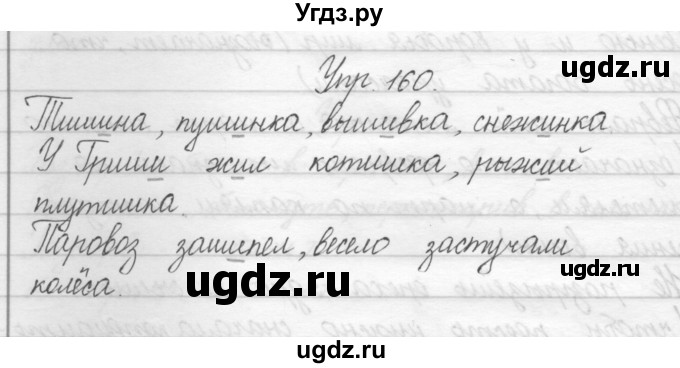 Угдз.ру
Упр. 160.
Тишина, пушинка, вышивка, снежинка
У Гриши жил котишка, рыжий
плутишка.
Паровоз зашипел, весело застучали
колёса.
ugdz.ru
ugdz.ru
ugdz.ru
ugdz.ru
ugdz.ru
ugdz.ru